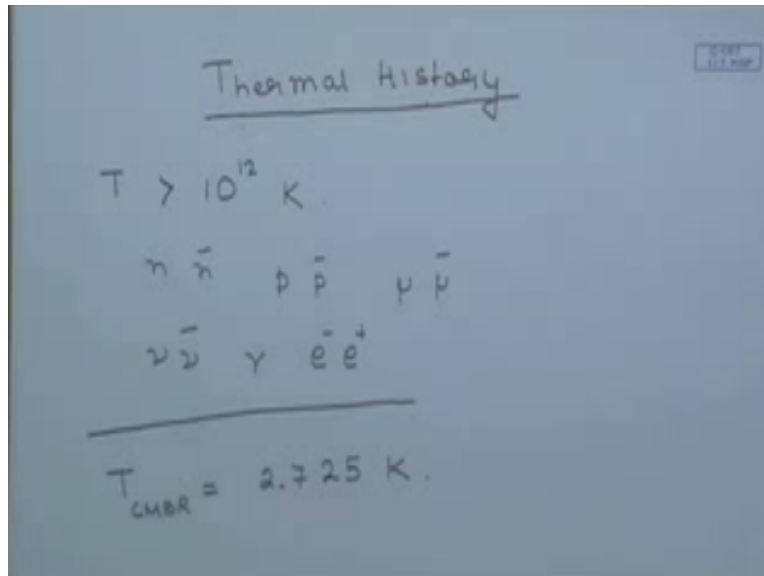 Thermal History
T > 10¹² K.
n n̄ p p̄ μ μ̄
ν ν̄ γ e⁻ e⁺
T_CMBR = 2.725 K.